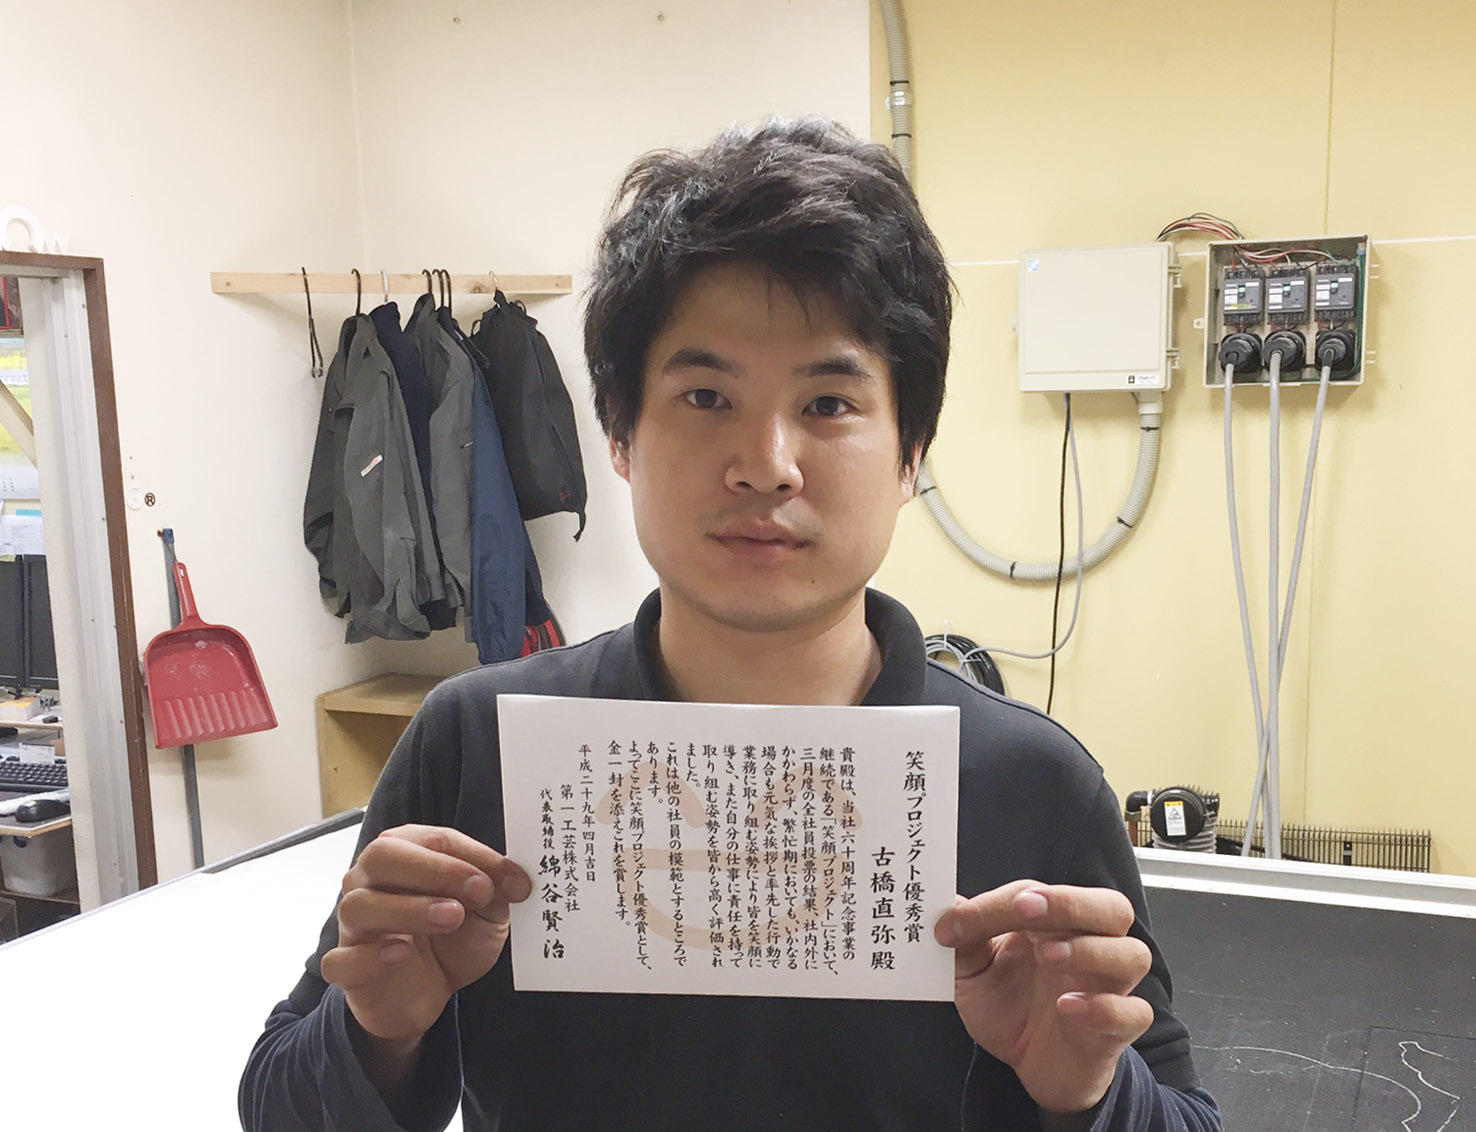 笑顔プロジェクト優秀賞
古橋直弥 殿
貴殿は、当社六十周年記念事業の
継続である「笑顔プロジェクト」において、
三月度の全社員投票の結果、社内外に
かかわらず、繁忙期においても、いかなる
場合も元気な挨拶と率先した行動で
業務に取り組む姿勢により皆を笑顔に
導き、また自分の仕事に責任を持って
取り組む姿勢を皆から高く評価され
ました。
これは他の社員の模範とするところで
あります。
よってここに笑顔プロジェクト優秀賞として、
金一封を添えこれを賞します。
平成二十九年四月吉日
第一工芸株式会社
代表取締役 綿谷賢治
®